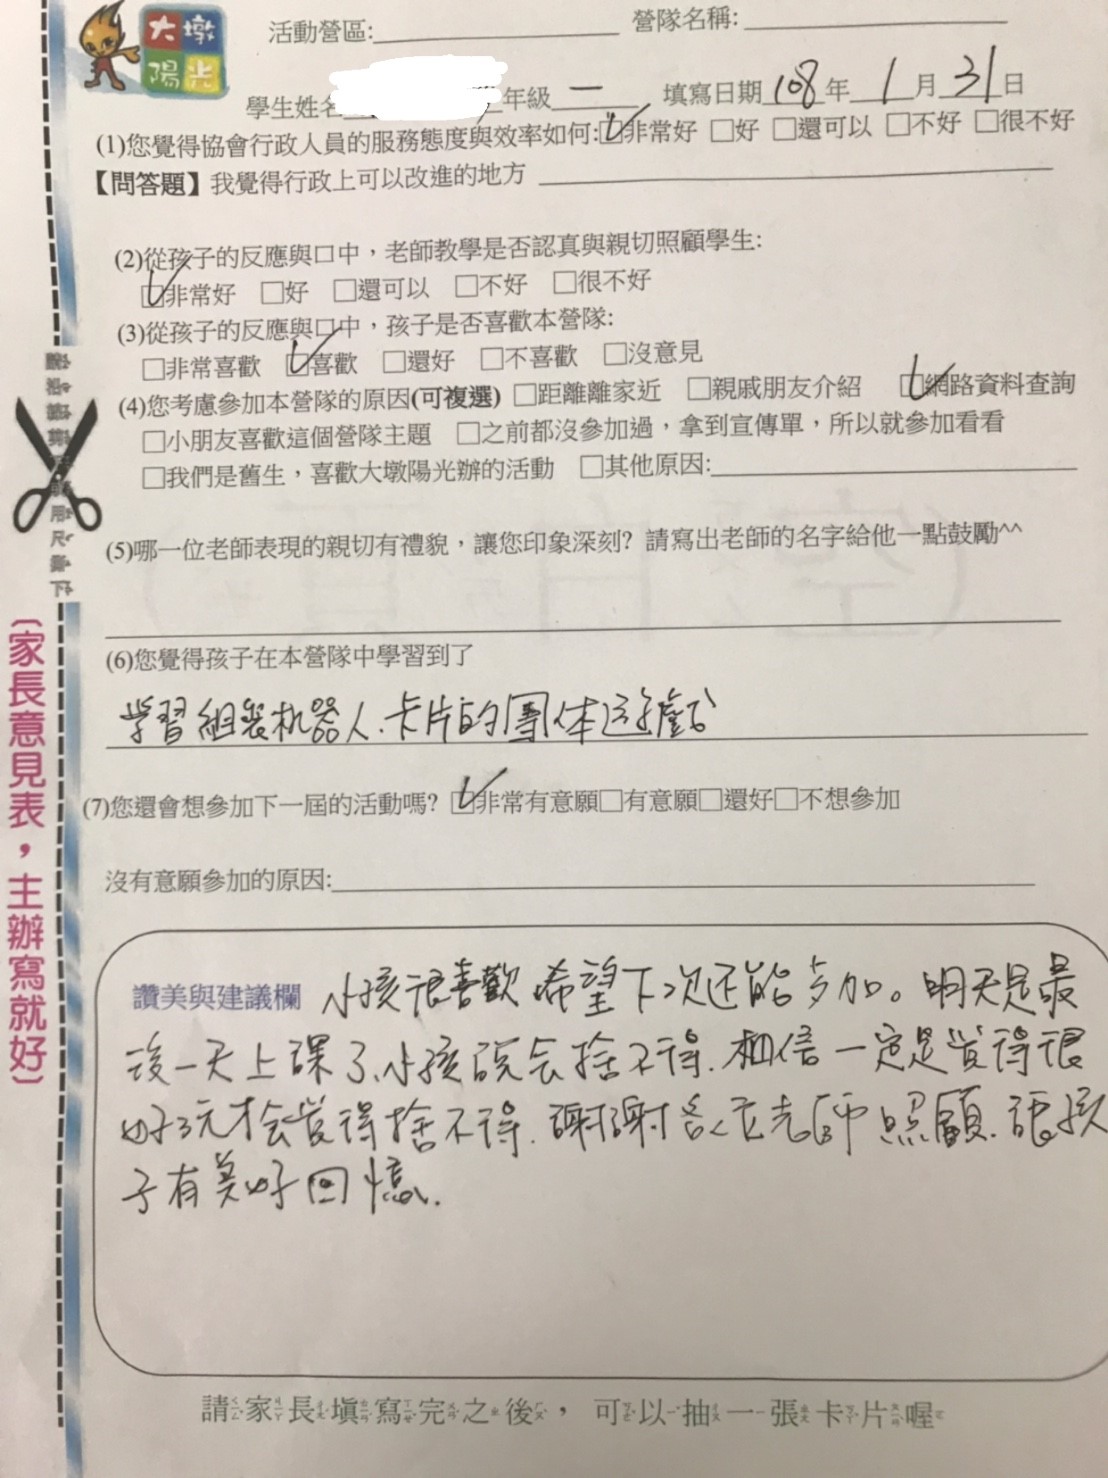 大墩
陽光
活動營區:
營隊名稱:
學生姓名 年級 一 填寫日期 108 年 1 月 31 日
(1)您覺得協會行政人員的服務態度與效率如何:☑非常好 □好 □還可以 □不好 □很不好
【問答題】我覺得行政上可以改進的地方
(2)從孩子的反應與口中，老師教學是否認真與親切照顧學生:
☑非常好 □好 □還可以 □不好 □很不好
(3)從孩子的反應與口中，孩子是否喜歡本營隊:
□非常喜歡 ☑喜歡 □還好 □不喜歡 □沒意見
(4)您考慮參加本營隊的原因(可複選) □距離離家近 □親戚朋友介紹 ☑網路資料查詢
□小朋友喜歡這個營隊主題 □之前都沒參加過，拿到宣傳單，所以就參加看看
□我們是舊生，喜歡大墩陽光辦的活動 □其他原因:
(5)哪一位老師表現的親切有禮貌，讓您印象深刻? 請寫出老師的名字給他一點鼓勵^^
(6)您覺得孩子在本營隊中學習到了
学習組裝机器人、卡片的團体遊戲
(7)您還會想參加下一屆的活動嗎? ☑非常有意願□有意願□還好□不想參加
沒有意願參加的原因:
讚美與建議欄 小孩很喜歡 希望下次还能参加。明天是最
後一天上課了、小孩說会捨不得. 相信一定是覚得很
好玩才会覚得捨不得. 謝謝各位老師照顧. 讓孩
子有美好回憶.
請家長填寫完之後，可以抽一張卡片喔
〔家長意見表，主辦寫就好〕